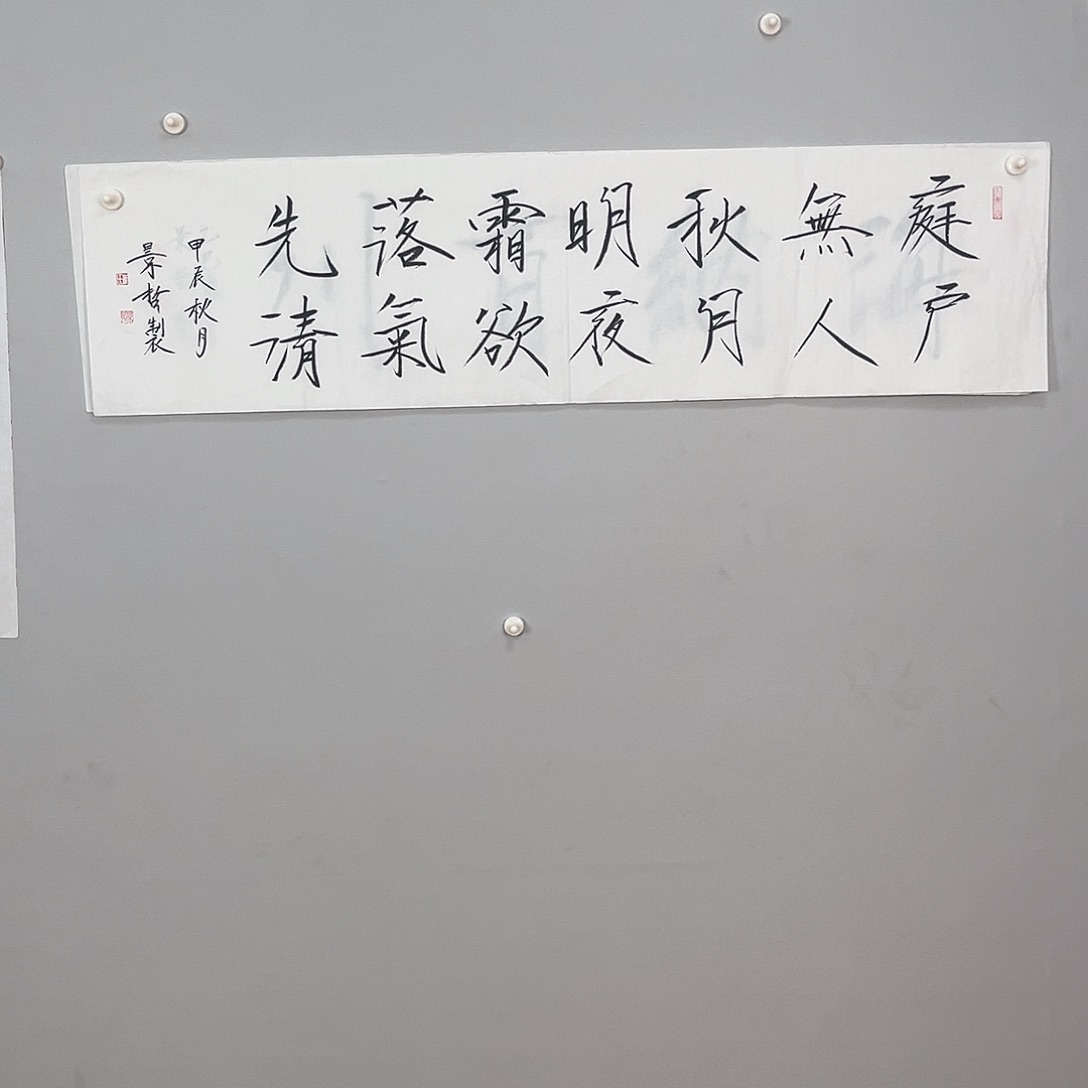 庭戶
無人
秋月
明夜
霜欲
落氣
先清
甲辰秋月
景哲製